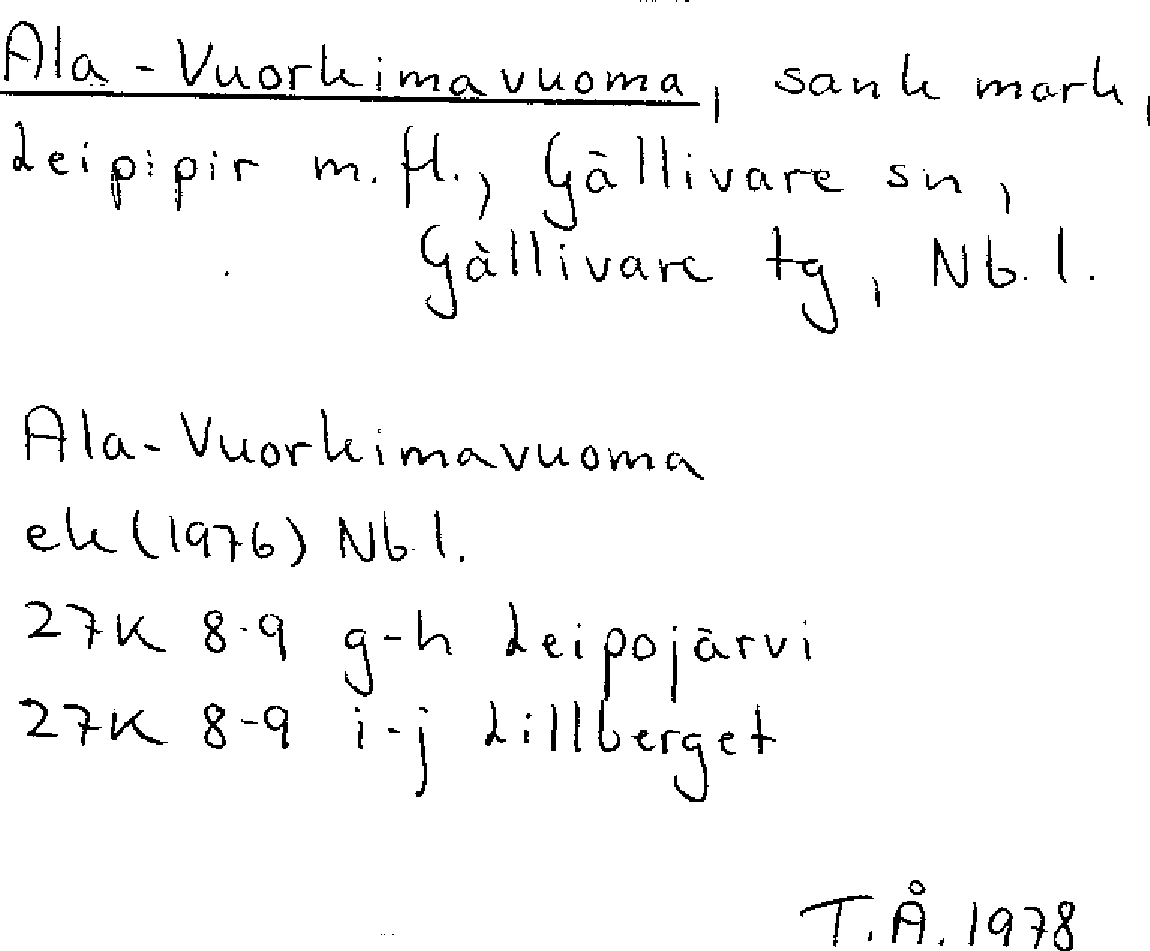 Ala-Vuorkimavuoma, sank mark,
Leipipir m.fl., Gällivare sn,
Gällivare tg, Nb.l.
Ala-Vuorkimavuoma
ek (1976) Nb.l.
27K 8-9 g-h Leipojärvi
27K 8-9 i-j Lillberget
T.Å. 1978